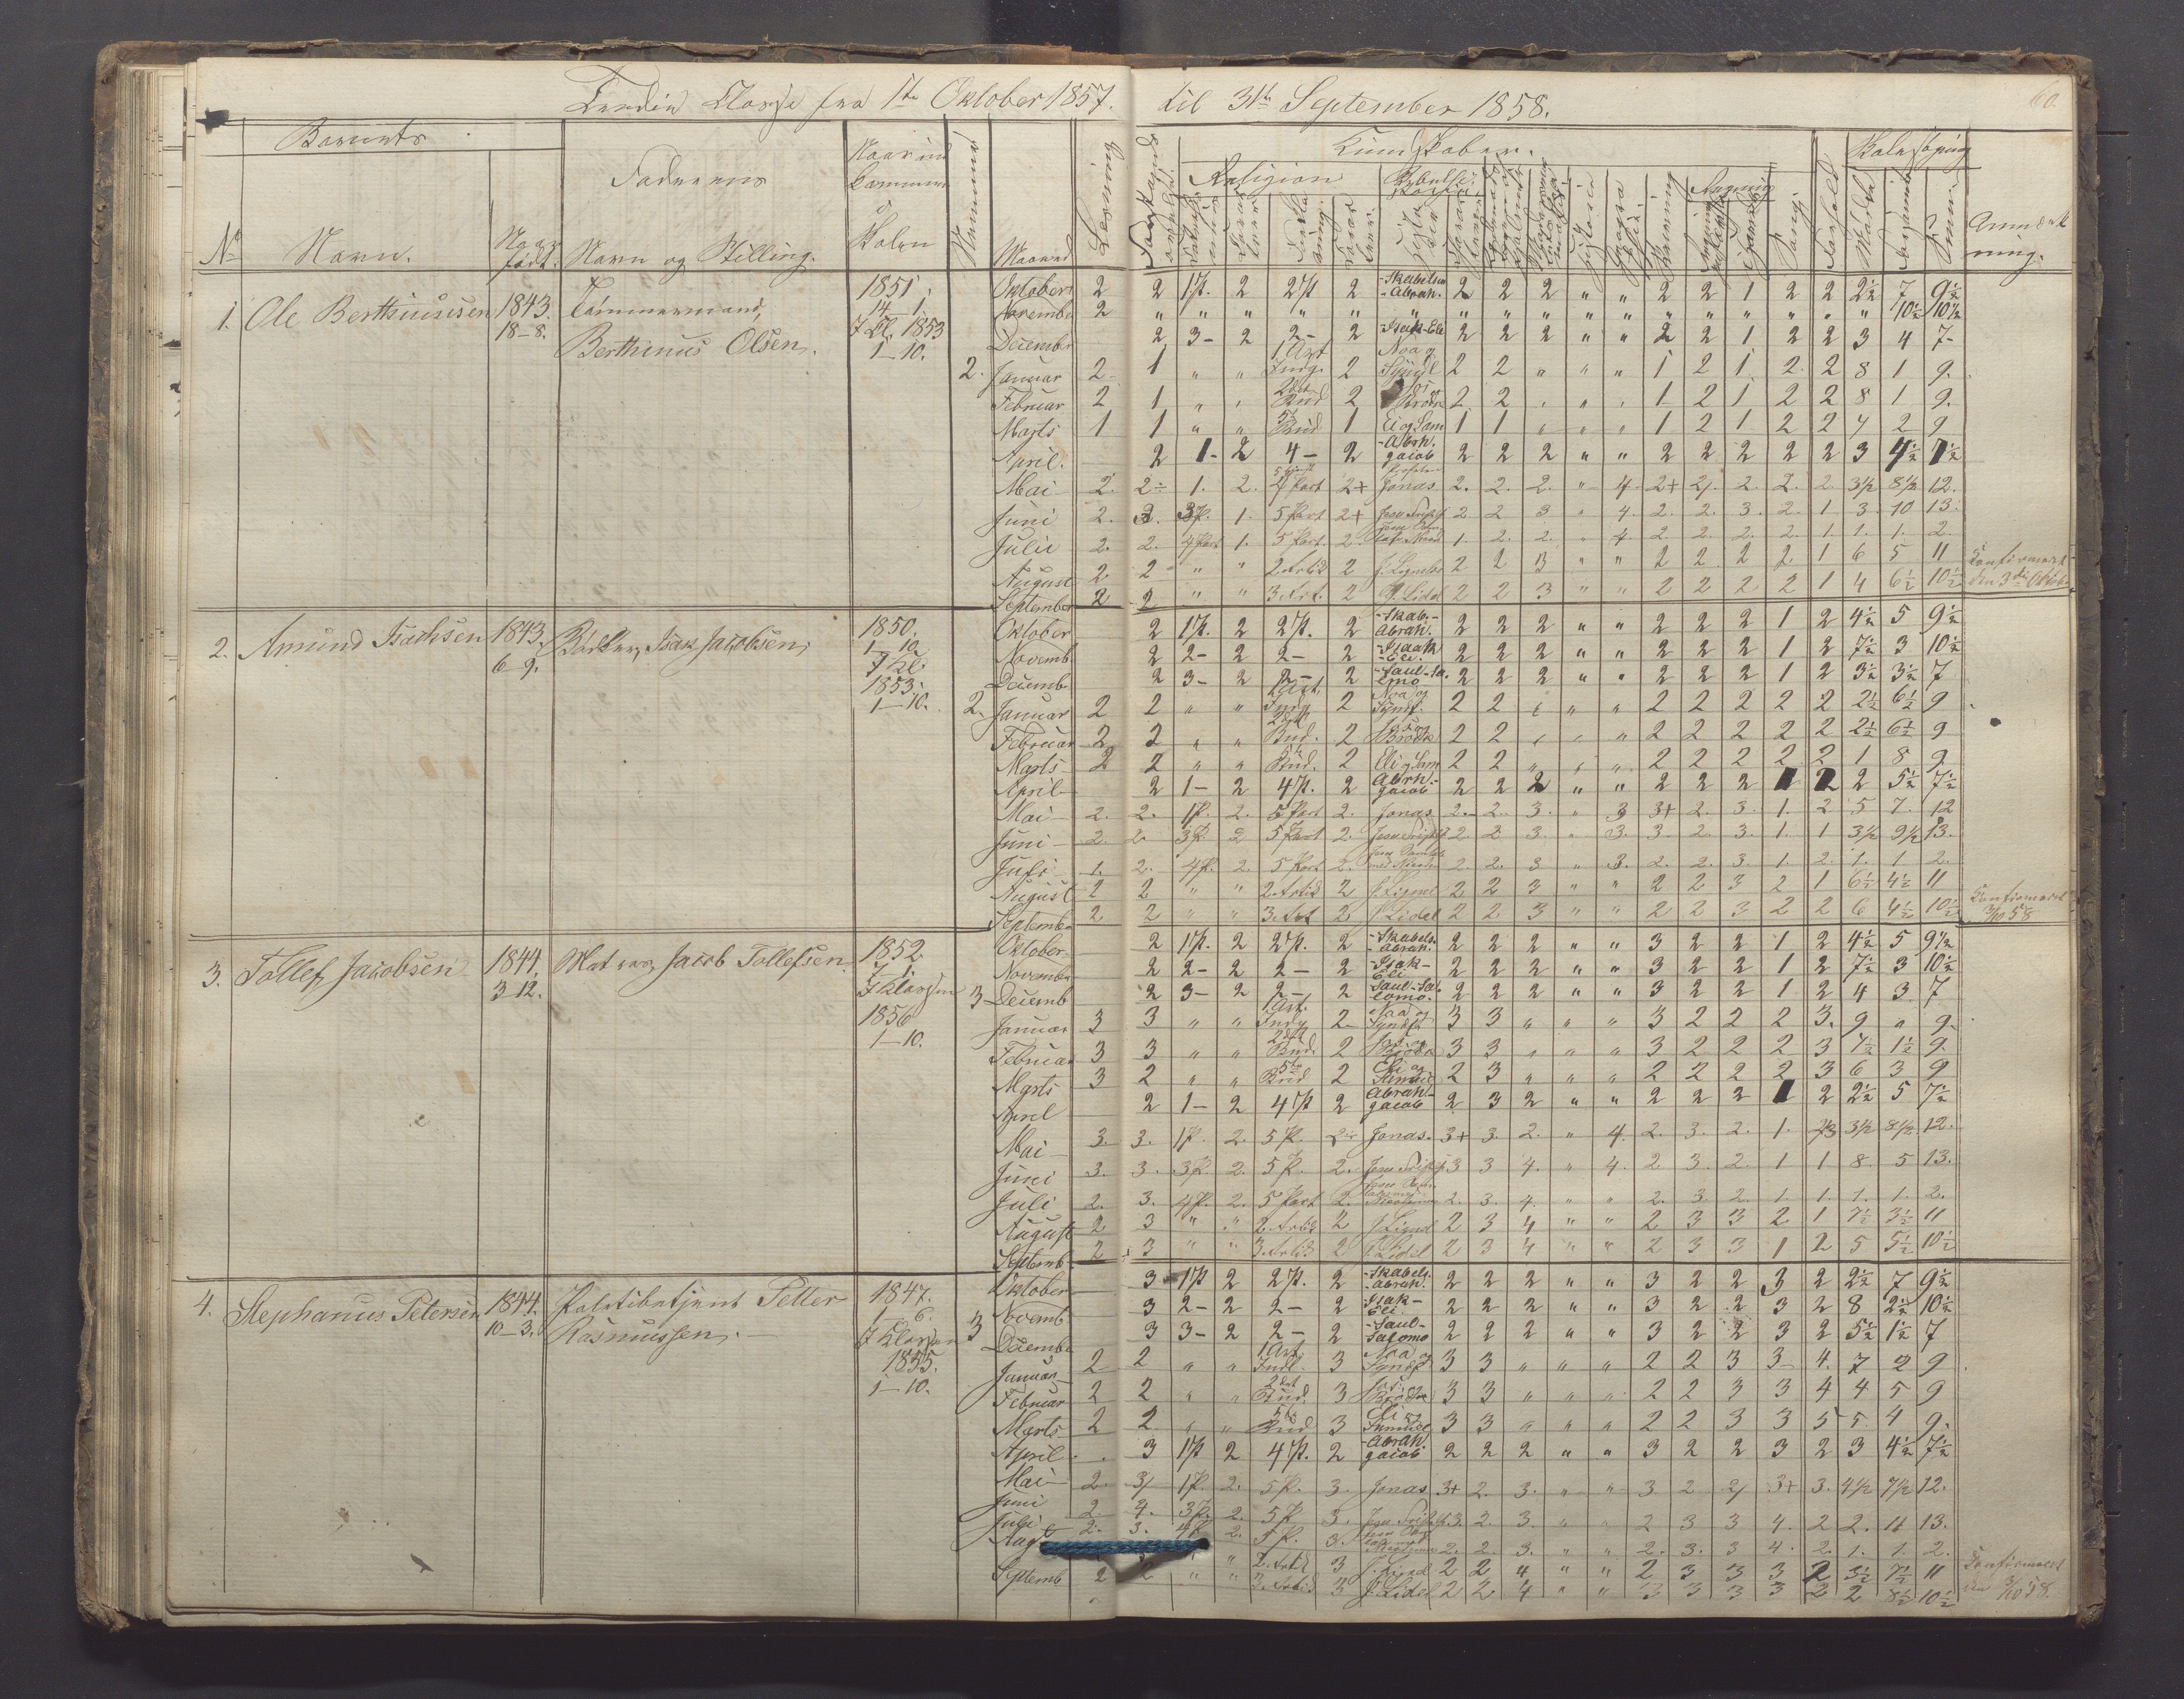 Tredie Classe fra 1te Oktober 1857. til 31te September 1858.
60.
Barnets
No Navn. Naar født.
Faderens
Navn og Stilling.
Naar ind
kommen
i
Skolen
Nummer
Maaned
Læsning
Kundskaber.
Religion
Skolesøgning
Anmærk
ning.
1. Ole Berthinussen 1843. 18-8. Tømmermand, Berthinus Olsen.
1851
14-1.
I Kl. 1853
1-10.
2.
Oktober 2 2 1P. 2 2P 2 Skabelsen - Abrah. 2 2 2 " " 2 2 1 2 2 2½ 7 9½
Novembe 2 " " " " " " " " " " " " " " " " " 10½ 10½
Decemb 2 3- 2 2- 2 Isak-Eli 2 2 2 " " 2 2 1 2 2 3 4 7-
Januar 2 1 " " 1 Art Indg. 2 Noa og Syndfl 2 2 " " " 1 2 1 2 2 8 1 9.
Februar 2 1 " " 2det Bud 2 Brødre 2 2 " " " 1 2 1 2 2 8 1 9.
Marts 1 1 " " 5te Bud 1 Eli og Sam 1 1 " " " 1 2 1 2 2 7 2 9
April. 2 1- 2 4- 2 Abrh. Jacob 2 2 2 " " 2 2 2 2 2 3 4½ 7½
Mai 2. 2- 1. 2. 4 Part 2+ Jonas 2. 2. 2. " 4. 2+ 2. 2. 2. 2. 3½ 8½ 12.
Juni 2. 3. 3P. 1. 5 Part 2+ 2 2 3 " 4. 2. 2. 3. 2. 1 3. 10 13.
Juli 2. 2. 4 Part 1. 5 Part. 2. 1. 2. 2. " 4 2 2. 2. 2. 1. 1. 1. 2.
August 2 2 " " 2. Artik 2 J. Lignels 2 2 3 " " 2 2 2 2 1 6 5 11
September 2 2 " " 3. Art. 2 J. Lidel 2 2 3 " " 2 2 2 2 1 4 6½ 10½
Konfirmeret
den 3die Oktbr
2. Amund Isachsen 1843. 6-9. Bødker, Isak Jacobsen,
1850.
1-10
I Kl.
1853.
1-10.
2.
Oktober 2 1P. 2 2P. 2 Skab.- Abrah. 2 2 2 " " 2 2 2 1 2 4½ 5 9½
Novemb 2 2- 2 2- 2 Isaak - Eli. 2 2 2 " " 2 2 2 1 2 7½ 3 10½
Decemb 2 3- 2 2- 2 Saul-Sa. lomo 2 2 2 " " 2 2 2 1 2 3½ 3½ 7
Januar 2 2 " " 1 Art. Indg 2 Noa og Syndf. 2 2 " " " 2 2 2 2 2 2½ 6½ 9
Februar 2 2 " " 2det Bud. 2 Brødre 2 2 " " " 2 2 2 2 2 2½ 6½ 9
Marts 2 2 " " 5te Bud. 2 Eli og Sam 2 2 " " " 2 2 2 2 2 1 8 9
April 2 1- 2 4P. 2 Abrh.- Jacob 2 2 2 " " 2 2 2 1 2 2 5½ 7½
Mai 2. 2. 1P. 2. 5 Part 2. Jonas 2. 2. 3. " 3 3+ 2. 3. 1. 2 5 7. 12
Juni 2. 2. 3P. 2 5 Part 2. 2 2 3. " 3. 3. 2. 3. 1. 1 3½ 9½ 13.
Juli 1. 2. 4P. 2. 5 Part 2. 2. 2. 3 " 3. 2. 2. 3. 1. 2. 1. 1 2.
August 2 2 " " 2. Artik 2 J. Lignel 2 2 3 " " 2 2 3 2 1 6½ 4½ 11
Septembe 2 2 " " 3. Art 2 J. Lidel 2 2 3 " " 2 2 3 2 2 6 4½ 10½
Konfirmeret
3/10 58
3. Tollef Jacobsen 1844. 3-12. Matros, Jacob Tollefsen.
1852
7-1.
I Klassen
1856
1-10.
3
Oktober 2 1P. 2 2P. 2 Skabels. - Abrah. 2 2 2 " " 3 2 2 1 2 4½ 5 9½
Novembe 2 2- 2 2- 2 Isak- Eli 2 2 2 " " 3 2 2 1 2 7½ 3 10½
Decemb 2 3- 2 2- 2 Saul-Sa. lomo. 2 2 2 " " 3 2 2 1 2 4 3 7
Januar 3 3 " " 1 Art. Indg 2 Noa og Syndfl 3 3 " " " 3 2 2 2 3. 9 " 9.
Februar 3 3 " " 2det Bud. 2 Brødre 3 3 " " " 3 2 2 2 3 7½ 1½ 9.
Marts 3 2 " " 5te Bud 2 Eli og Samuel 2 3 " " " 2 2 2 2 3 6 3 9
April 2 1- 2 4P 2 Abrah- Jacob 2 3 2 " " 2 2 2 1 2 2½ 5 7½
Mai 3. 3. 1P. 2. 5P. Jonas. 3+ 3. 2. " 4. 2. 3. 2. 1. 3½ 8½ 12.
Juni 3. 3. 3P. 2. 5P. 2. 3 3 4. " 4. 2 3. 2. 1 1 8. 5 13.
Juli 2. 3. 4P. 2. 5 Part 2. 2. 3. 4. " " 2. 3. 2. 1. 1. 1. 1. 2.
August 2 3 " " 2. Artik 2 J. Lignel 2 3 4 " " 2 3 3 2 1 7½ 3½ 11
Septemb 2 3 " " 3. Artik 2 J. Lidel 2 3 4 " " 2 3 3 1 2 5 5½ 10½
4. Stephanus Petersen 1844. 10-3. Politibetjent Petter Rasmussen.
1847.
1-6.
I Klassen
1855.
1-10.
3
Oktober 3 1P 2 2P. 2 Skabels. - Abrah. 2 2 2 " " 3 2 2 3 2 2½ 7 9½
Novemb 3 2- 2 2- 2 Isak- Eli. 2 2 2 " " 3 2 2 3 2 8 2½ 10½
Decembe 3 3- 2 2- 2 Saul- Salomo 2 2 2 " " 3 2 2 3 2 5½ 1½ 7
Januar 2 2 " " 1 Art. Indl. 3 Noa og Syndfl 3 3 " " " 2 2 3 3 4. 7 2 9
Februar 2 2 " " 2det Bud. 3 Brødre 3 3 " " " 2 2 3 3 4 4 5 9
Marts 2 2 " " 5te Bud 3 Eli og Samuel 3 3 " " " 2 2 3 3 5 5 4 9.
April 3 1P 2 4P. 2 Abrah. Jacob 2 2 2 " " 3 2 2 3 2 3 4½ 7½
Mai 2. 1P. 2. 5P. 3. Jonas 3+ 2. 3. " " 3 2 3+ 3. 4½ 7½ 12.
Juni 2. 4. 3P. 2. 5P 3. 3. 2. 3. " " 2 3 3 4. 2 2. 11 13.
Juli 2. 3. 4P 2. 5P. 3. 2. 2. 3. " " 2. 3. 3 4. 2. 1. 1. 2.
Aug " 2. Artik 3 J. Lignel 2 2 4 " " 2 3 3 3 2 3½ 7½ 11
Septemb 2 2 " " 3. Artik 3 J. Lidel 2 2 4 " " 3 3 3 3 2 2 8½ 10½
Konfirmeret
den 3/10 58.